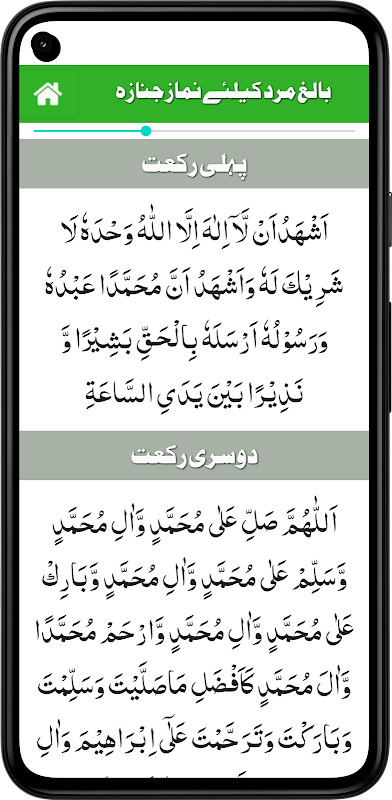 بالغ مرد کیلئے نماز جنازہ
پہلی رکعت
اَشْهَدُ اَنْ لَّاۤ اِلٰهَ اِلَّا اللّٰهُ وَحْدَهٗ لَا
شَرِيْكَ لَهٗ وَاَشْهَدُ اَنَّ مُحَمَّدًا عَبْدُهٗ
وَرَسُوْلُهٗ اَرْسَلَهٗ بِالْحَقِّ بَشِيْرًا وَّ
نَذِيْرًا بَيْنَ يَدَىِ السَّاعَةِ
دوسری رکعت
اَللّٰهُمَّ صَلِّ عَلٰى مُحَمَّدٍ وَّاٰلِ مُحَمَّدٍ
وَّسَلِّمْ عَلٰى مُحَمَّدٍ وَّاٰلِ مُحَمَّدٍ وَّبَارِكْ
عَلٰى مُحَمَّدٍ وَّاٰلِ مُحَمَّدٍ وَّارْحَمْ مُحَمَّدًا
وَّاٰلَ مُحَمَّدٍ كَاَفْضَلِ مَا صَلَّيْتَ وَسَلَّمْتَ
وَبَارَكْتَ وَتَرَحَّمْتَ عَلٰٓى اِبْرَاهِيْمَ وَاٰلِ